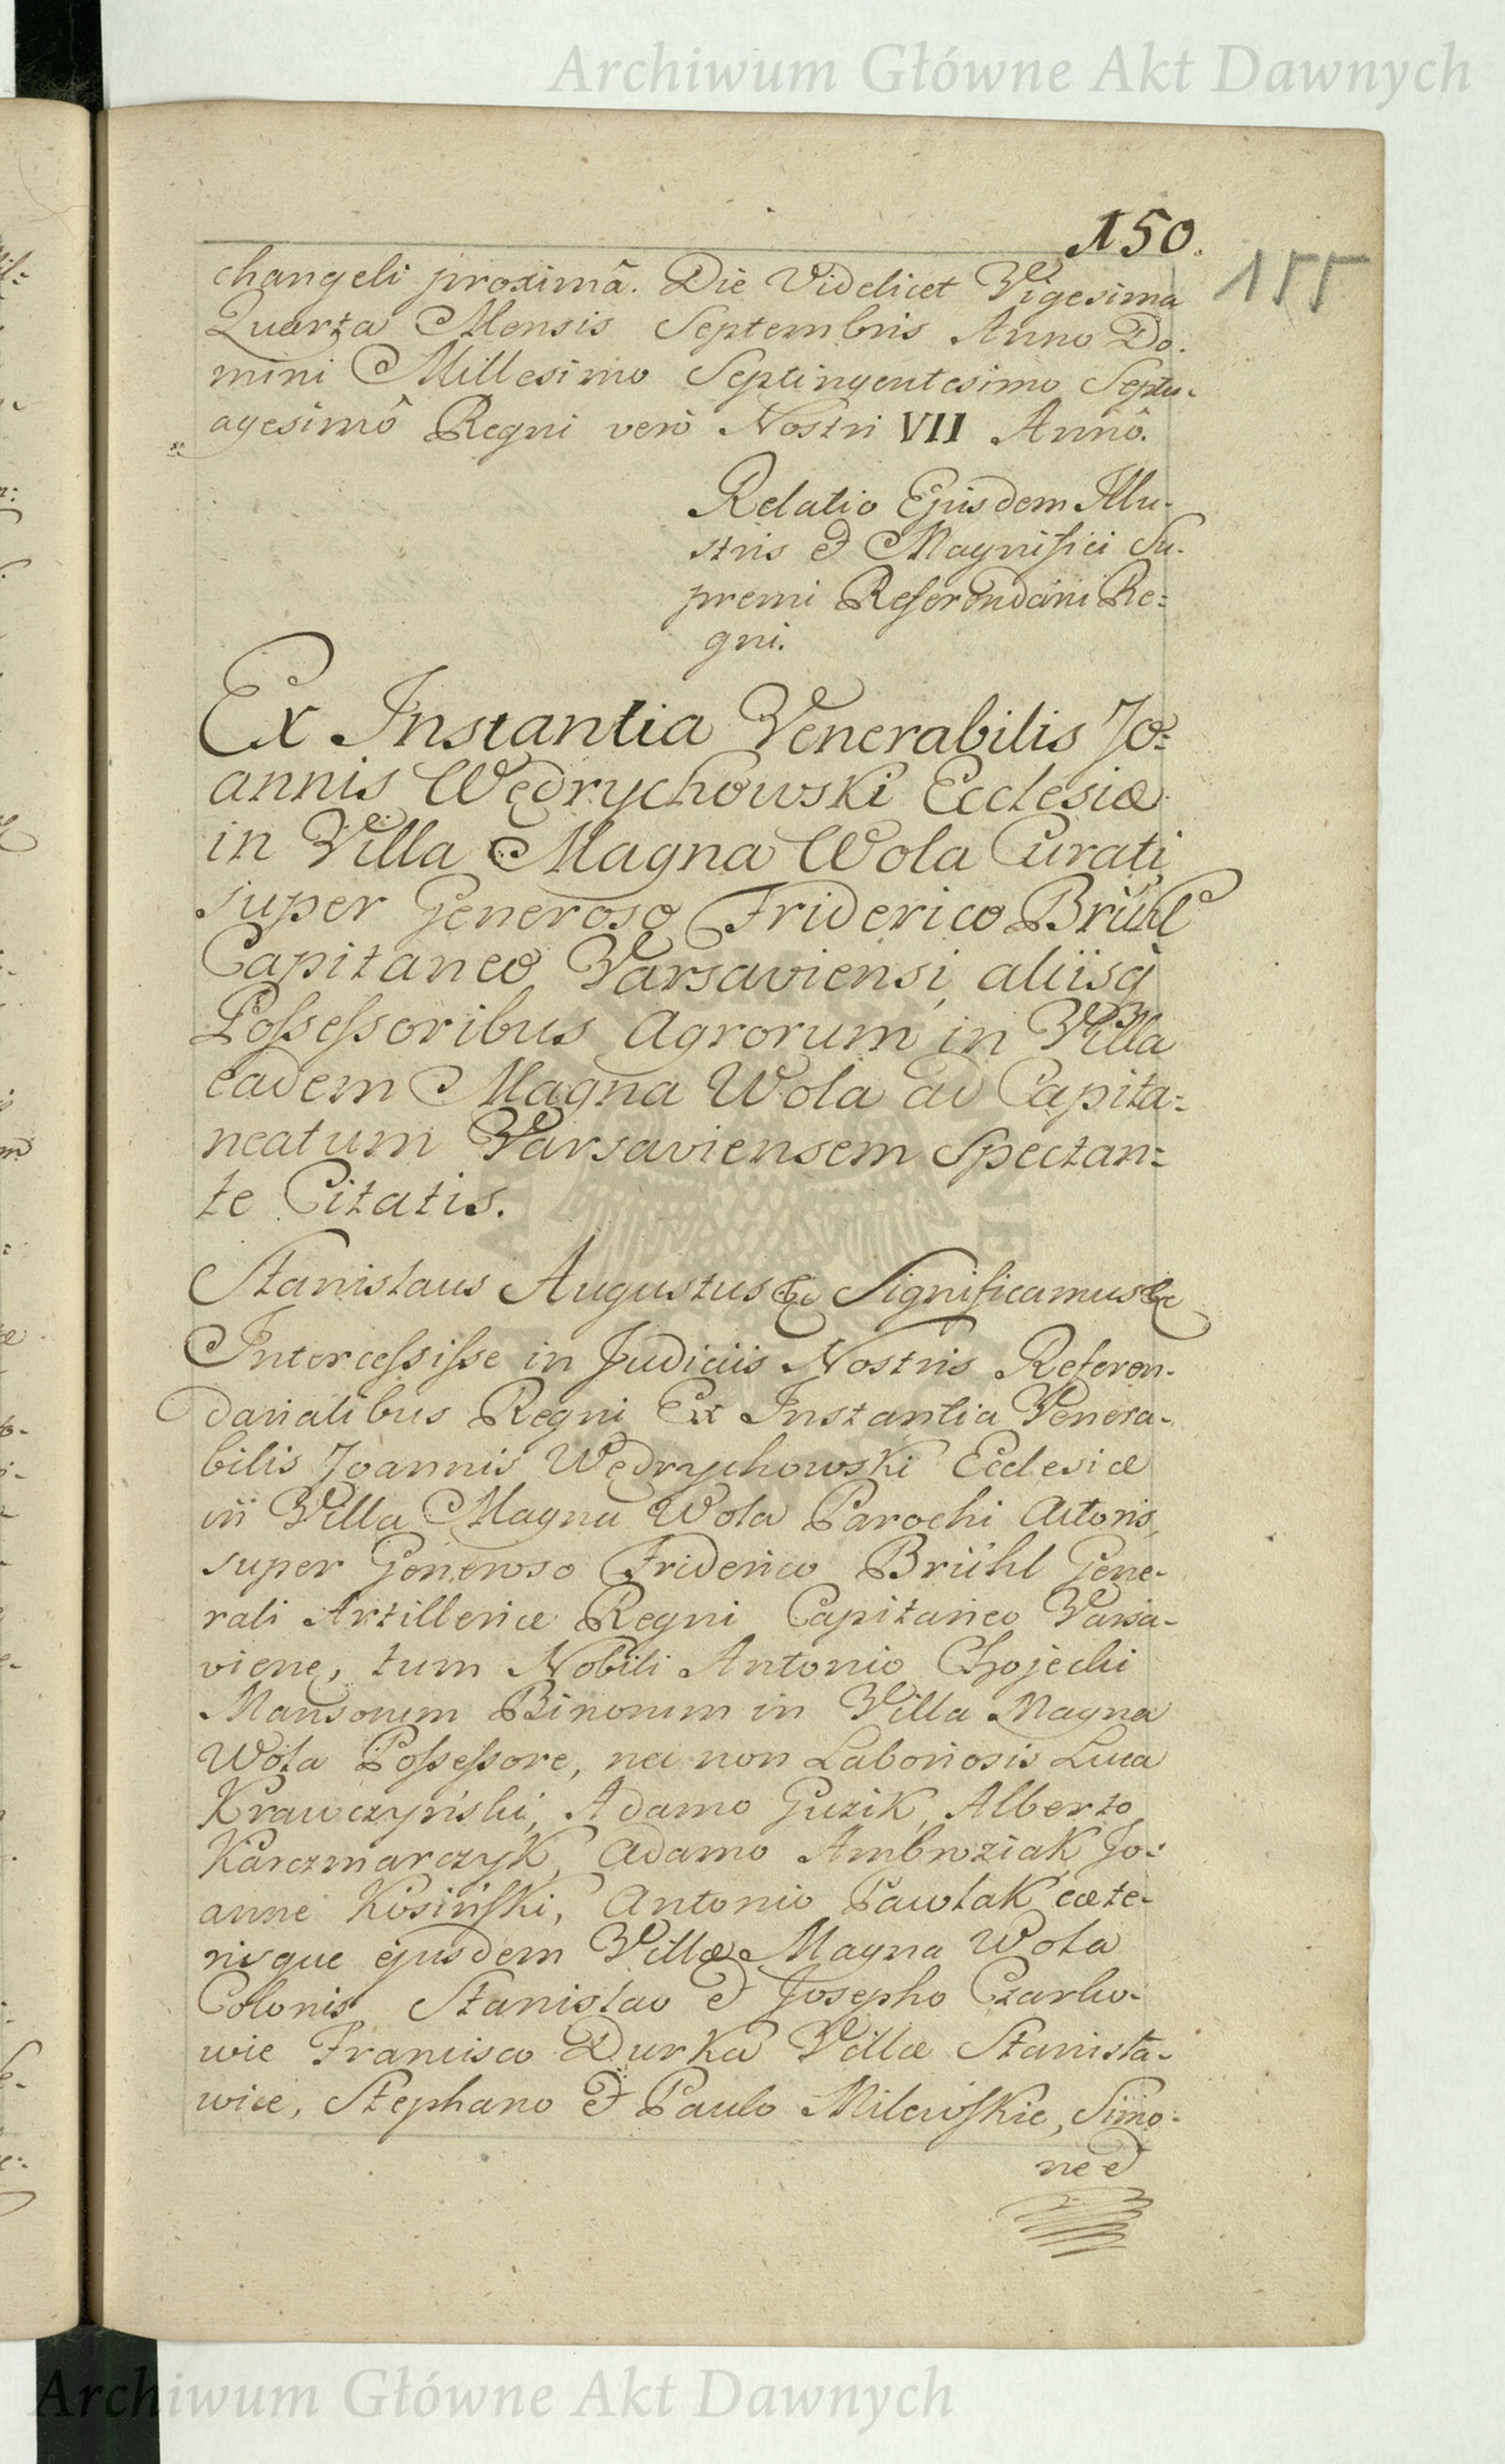 Archiwum Główne Akt Dawnych
150.
155
changeli proximâ. Die Videlicet Vigesima
Quarta Mensis Septembris Anno Do-
mini Millesimo Septingentesimo Septu-
agesimô Regni verò Nostri VII Annô.
Relatio Ejusdem Illu-
stris et Magnifici Su-
premi Referendarii Re=
gni.
Ex Instantia Venerabilis Jo=
annis Wędrychowski Ecclesiæ
in Villa Magna Wola Curati,
super Generoso Friderico Brühl
Capitaneo Varsaviensi, aliisq
Possessoribus Agrorum in Villa
eadem Magna Wola ad Capita=
neatum Varsaviensem Spectan=
te Citatis.
Stanislaus Augustus &c Significamus &c
Intercessisse in Judiciis Nostris Referen-
darialibus Regni Ex Instantia Venera-
bilis Joannis Wędrychowski Ecclesiæ
in Villa Magna Wola Parochi Actoris,
super Generoso Friderico Brühl Gene-
rali Artilleriæ Regni Capitaneo Varsa-
viene, tum Nobili Antonio Chojecki
Mansorum Binorum in Villa Magna
Wola Possessore, nec non Laboriosis Luca
Krawczyński, Adamo Guzik, Alberto
Karczmarczyk, Adamo Ambroziak, Jo=
anne Kosiński, Antonio Pawlak cæte-
risque ejusdem Villæ Magna Wola
Colonis, Stanislao et Josepho Czarho-
wie Francisco Durka Villæ Stanisla-
wice, Stephano et Paulo Milewskie, Simo-
ne et
Archiwum Główne Akt Dawnych